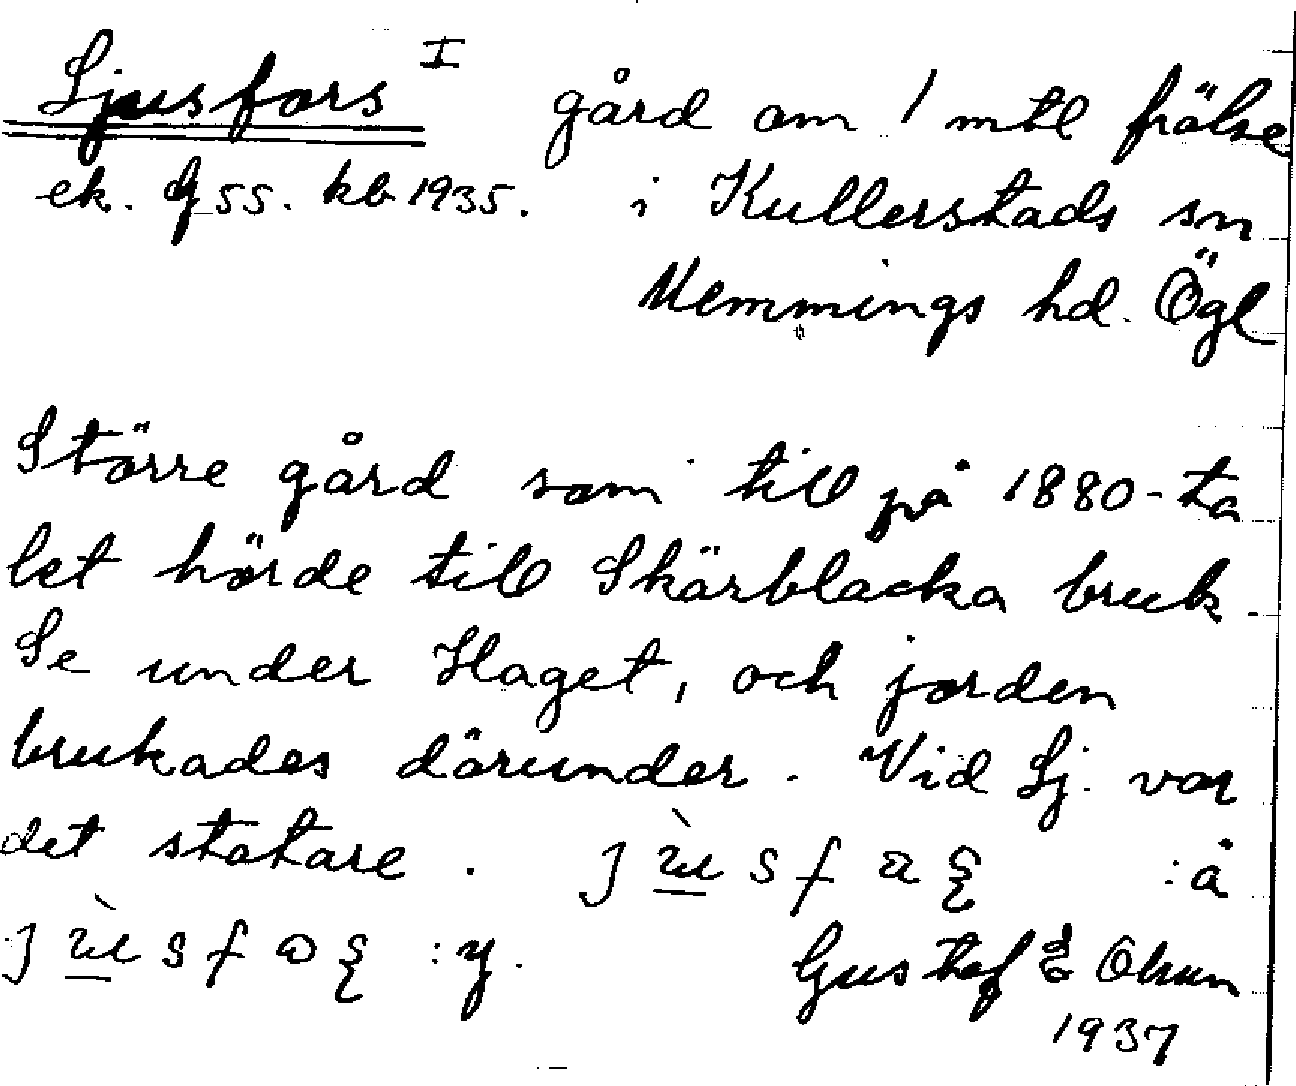 Ljusfors I gård om 1 mtl frälse
ek. 55. kb 1935. i Kullerstads sn
Memmings hd. Ögl
Större gård som till på 1880-ta
let hörde till Skärblacka bruk
Se under Haget, och jorden
brukades därunder. Vid Lj. var
det statare. :å
:y. Gustaf Olson
1937